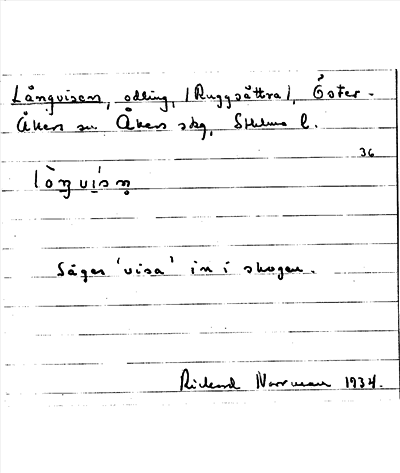 Långvisen, odling, /Ruggsättra/, Öster-
Åkers sn Åkers skg, Sthlms l.
36
lò̀ŋvi̱sn̥
Säges 'visa' in i skogen.
Rickard Norrman 1934.